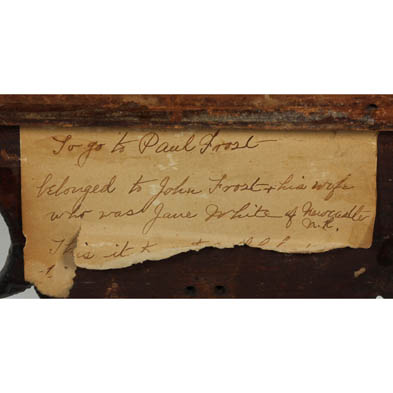 To go to Paul Frost
belonged to John Frost & his wife
who was Jane White of Newcastle
N.H.
This it